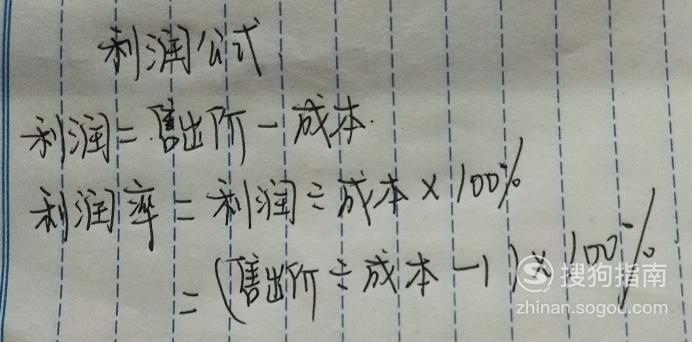 利润公式
利润=售出价-成本.
利润率=利润÷成本×100%
=(售出价÷成本-1)×100%
搜狗指南
zhinan.sogou.com